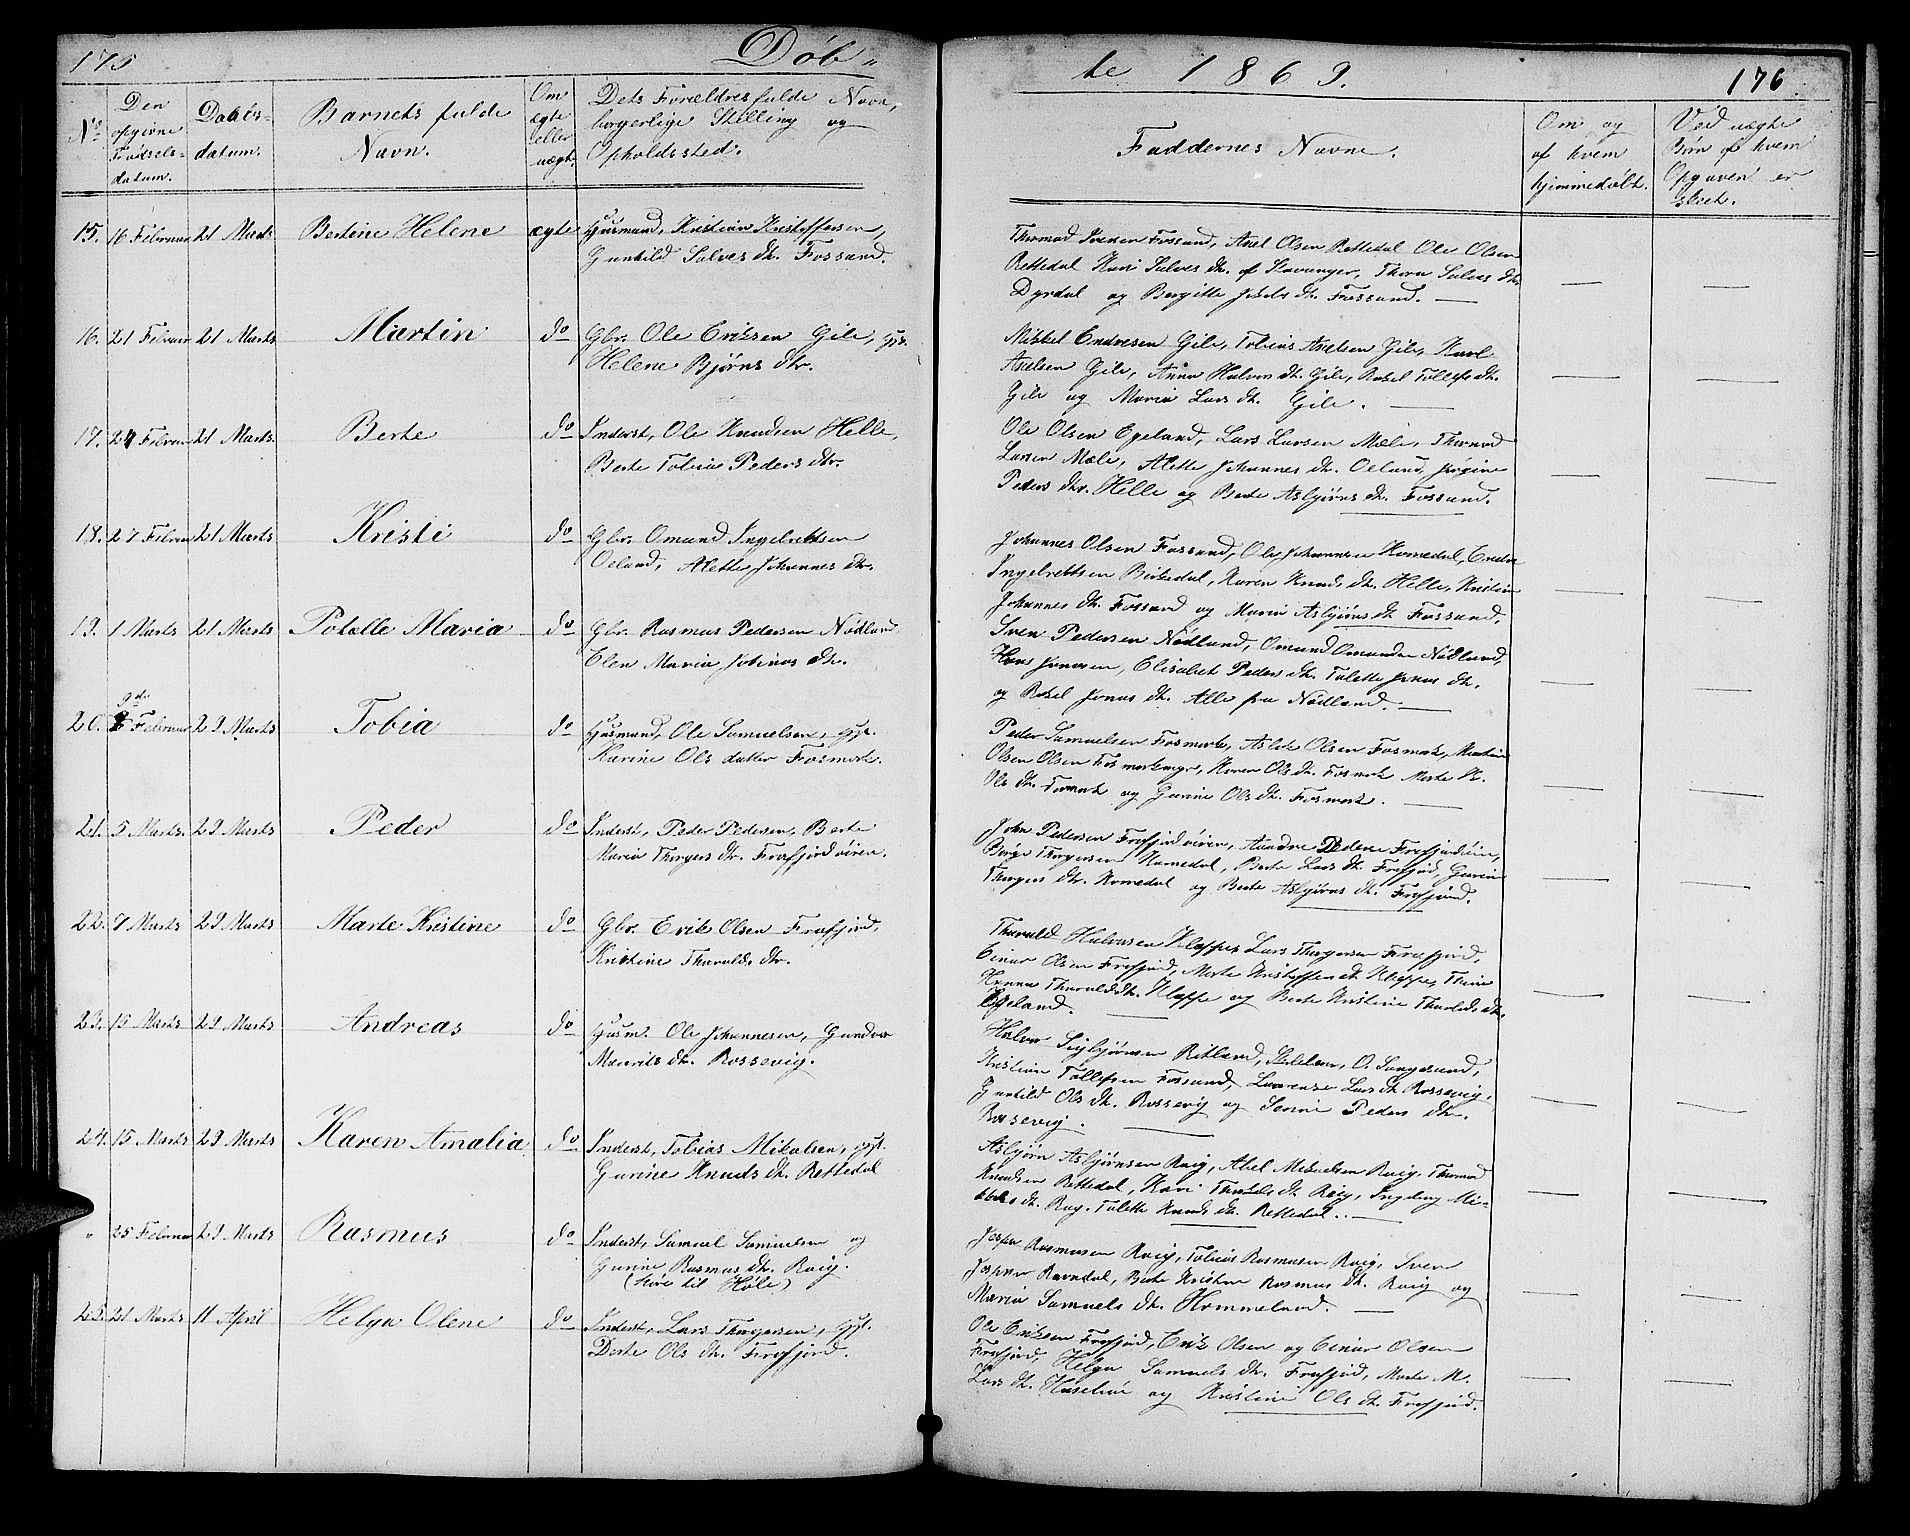 175
Døb-
te 1869.
176
No
Den opgivne Fødsels-datum.
Daabs-datum.
Barnets fulde Navn.
Om ægte eller uægt.
Dets Forældres fulde Navn, borgerlige Stilling og Opholdssted.
Faddernes Navne.
Om og af hvem hjemmedøbt.
Ved uægte Børn af hvem Opgaven er skeet.
15. 16 Februar 21 Marts Bertine Helene ægte Husmand, Kristian Kristoffersen,
Gunhild Salves dtr. Fossand.
Thormod Iversen Fossand, Axel Olsen Rettedal Ole Olsen
Rettedal Kari Salves dtr. af Stavanger, Thora Salves dtr.
Dyrdal og Bergitte dtr. Fossand. —
16. 21 Februar 21 Marts Martin do Gbr. Ole Eriksen Gile, gft.
Helene Bjørns dtr.
Mikkel Endresen Gile, Tobias Axelsen Gile, Karl
Axelsen Gile, Anna Halvors dtr. Gile, Rakel Tollefs dtr.
Gile og Maria Lars dtr. Gile. —
17. 24 Februar 21 Marts. Berte do Inderst, Ole Knudsen Helle,
Berte Tobia Peders dtr.
Ole Olsen Egeland, Lars Larsen Mæle, Thormod
Larsen Mæle, Alette Johannes dtr. Oeland, Jørgine
Peders dtr. Helle og Berte Asbjørns dtr. Fossand.
18. 27 Februar 21 Marts Kristi do Gbr. Omund Ingebrettsen
Oeland, Alette Johannes dtr.
Johannes Olsen Fossand, Ole Johannesen Komedal, Endre
Ingebrettsen Birkedal, Karen Knuds dtr. Helle, Kristine
Johannes dtr. Fossand og Maria Asbjørns dtr Fossand,
19. 1 Marts 21 Marts Potelle Maria do Gbr. Rasmus Pedersen Nødland
Elen Maria dtr.
Sven Pedersen Nødland, Omund Omundsen Nødland,
Hans Jonasen, Elisabet Peders dtr. Tolette Jonas dtr.
og Rakel Jonas dtr. Alle fra Nødland. —
20. 9de Februar 29 Marts Tobia do Husmand, Ole Samuelsen, gft.
Karine Ols datter Fosmork.
Peder Samuelsen Fosmork, Aslak Olsen Fosmork, Martin
Olsen Olsen Fosmorkmyr, Karen Ols dtr. Fosmork Marte K.
Ols dtr. Fosmork og Gurine Ols dtr. Fosmork. —
21. 5 Marts. 29 Marts Peder do Inderst, Peder Pedersen, Berte
Maria Thorgers dtr. Frafjordøiren.
John Pedersen Frafjordøiren, Frafjordøiren,
Børge Thorgersen Komedal, Berte Lars dtr. Frafjord, Gurine
Thorgers dtr. Komedal og Berte Asbjørns dtr. Frafjord.
22. 7 Marts 29 Marts Marte Kristine do Gbr. Erik Olsen Frafjord,
Kristine Thoralds dtr.
Thorald Halvorsen Kleppe, Lars Thorgersen Frafjord,
Einar Olsen Frafjord, Marte Kristoffers dtr Kleppe, Thine
Hanna Thoralds dtr. Kleppe og Berte Kristine Thoralds dtr.
Egeland. —
23. 15 Marts 29 Marts Andreas do Husm. Ole Johannesen, Gundvor
Maurits dtr. Rossevig.
Halvor Sigbjørnsen Ritland, O. Songesand,
Kristian Tollefsen Fossand, Laurense Lars dtr Rossevig,
Gunhild Ols dtr. Rossevig og Serine Peders dtr.
Rossevig. —
24. 15 Marts 29 Marts Karen Amalia do Inderst, Tobias Mikalsen, gft.
Gurine Knuds dtr. Rettedal
Asbjørn Asbjørnsen Røig, Abel Mikalsen Røig, Thormod
Knudsen Rettedal, Kari Thorkelds dtr Røig, Ingeborg Mi-
kkels dtr. Røig. Tolette Knuds dtr. Rettedal. —
" 25 Februar 29 Marts Rasmus do Inderst, Samuel Samuelsen og
Gurine Rasmus dtr. Røig.
(høre til Høle)
Jesper Rasmusen Røig, Tobias Rasmusen Røig, Sven
Jespersen Ravndal, Berte Kristine Rasmus dtr. Røig og
Maria Samuels dtr. Hommeland. —
25. 21 Marts 11 April Helga Olene do Inderst, Lars Thorgersen, gft.
Dorte Ols dtr. Frafjord.
Ole Eriksen Frafjord, Erik Olsen og Einar Olsen
Frafjord, Helga Samuels dtr. Frafjord, Marte M.
Lars dtr. og Kristine Ols dtr. Frafjord.